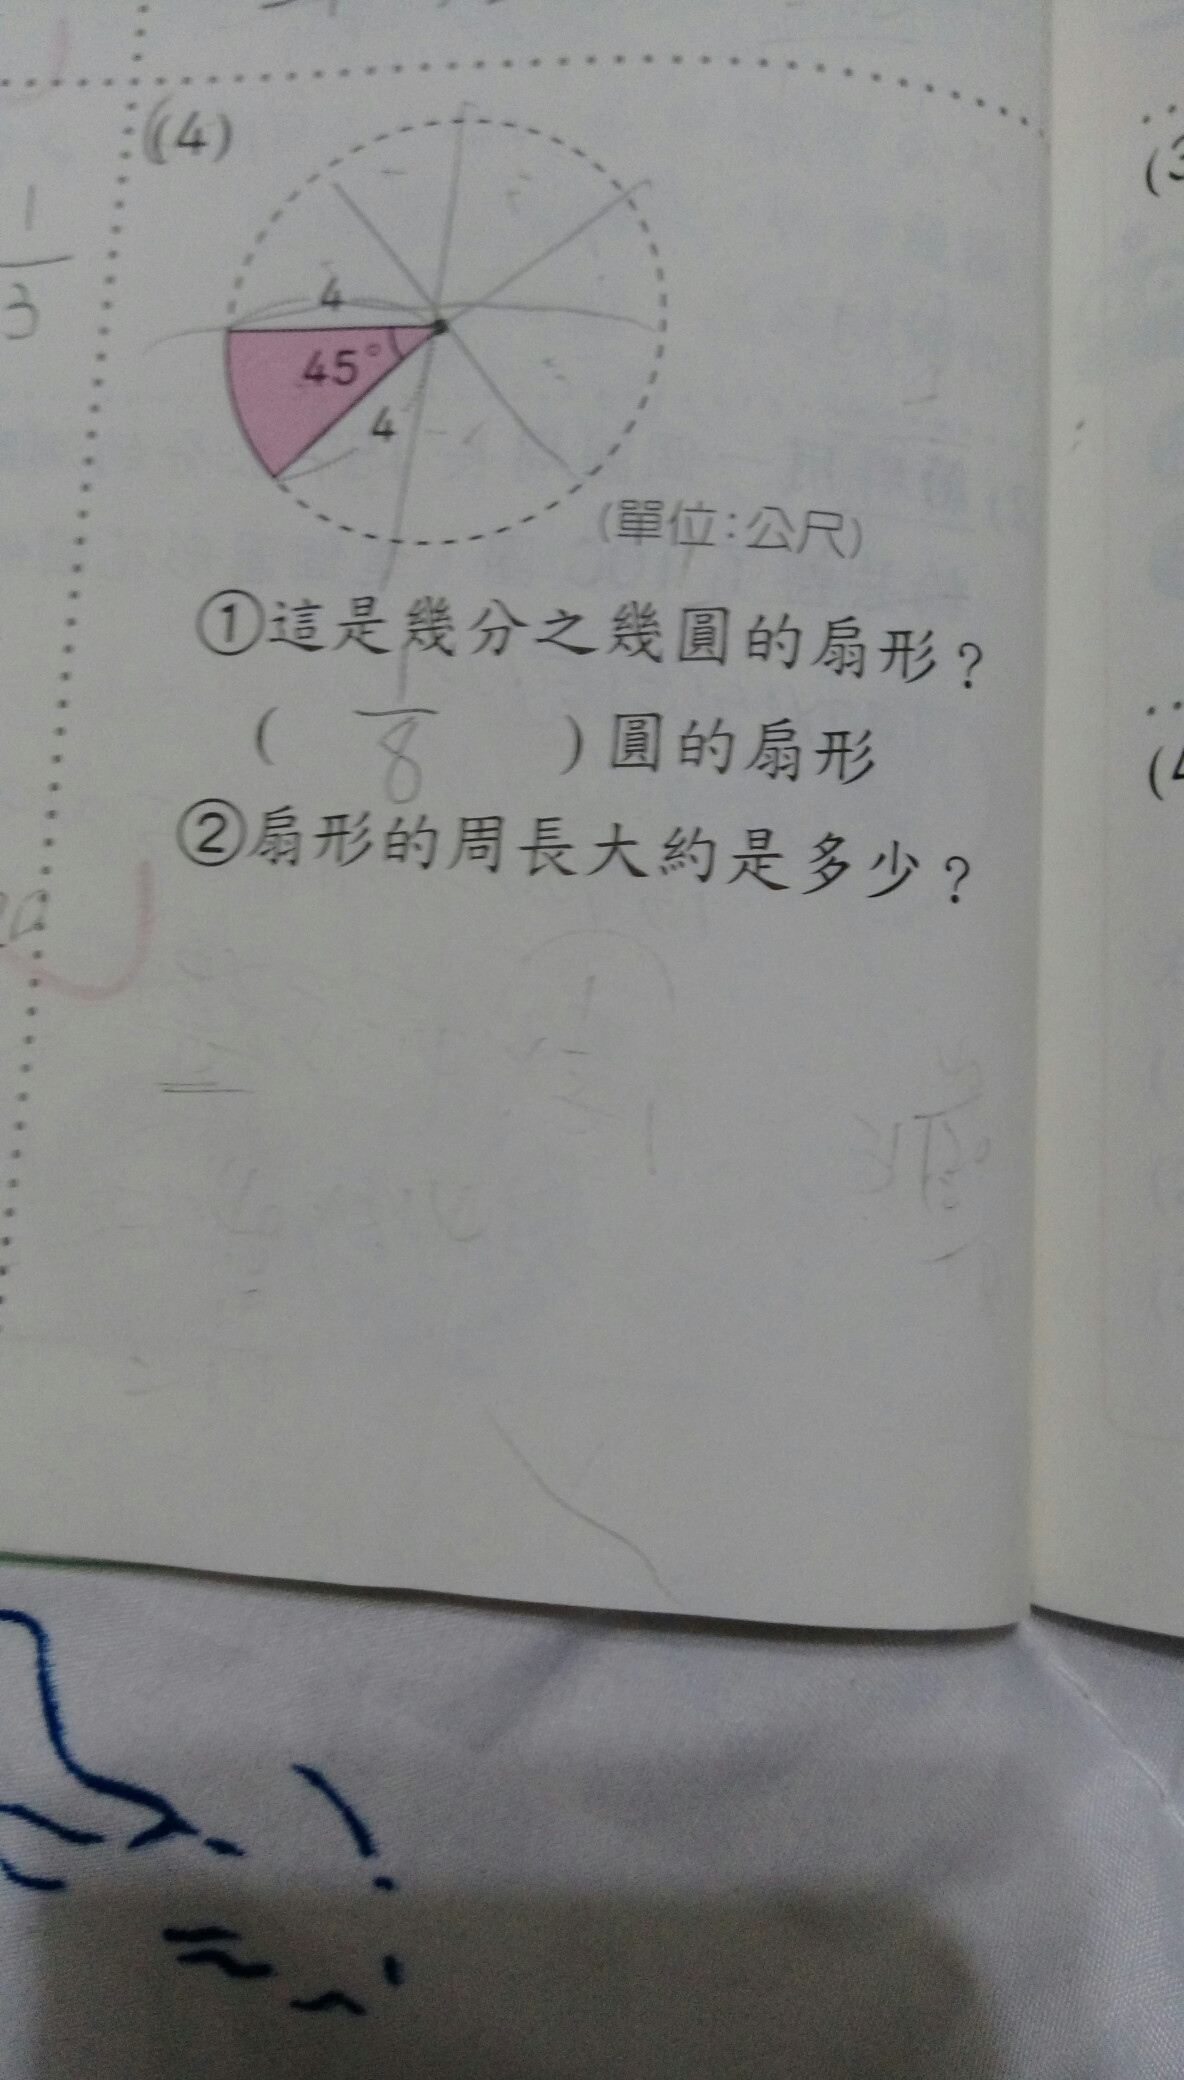 (4)
4
45°
4
(單位:公尺)
①這是幾分之幾圓的扇形?
( 1/8 )圓的扇形
②扇形的周長大約是多少?
1
3